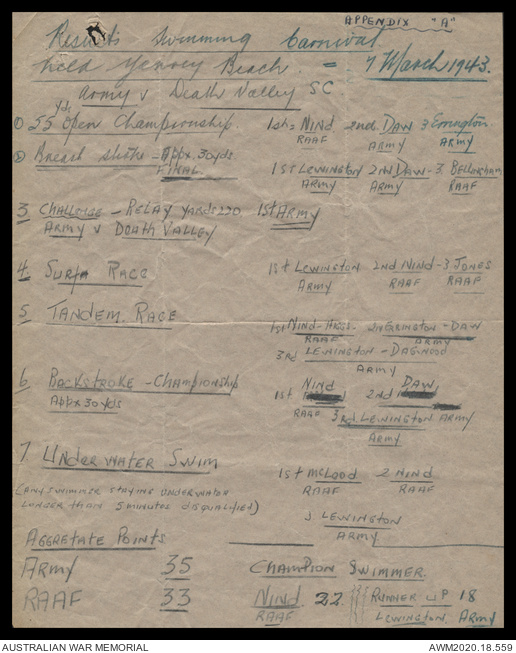 APPENDIX "A"
Results Swimming Carnival
held Yenroy Beach. = 7 March 1943.
Army v Death Valley SC
① 55 yds Open Championship 1st= NIND 2nd. DAW 3 Errington
RAAF ARMY ARMY
② Breast stroke - Appx. 30yds
FINAL. 1st LEWINGTON 2nd DAW - 3. BELLORHAM
ARMY ARMY RAAF
3 CHALLENGE - RELAY YARDS 220 1st ARMY
ARMY v DEATH VALLEY
4. SURFA RACE 1st LEWINGTON 2nd NIND - 3 JONES
ARMY RAAF RAAF
5 TANDEM. RACE
1st NIND - 2nd ERRINGTON - DAW
RAAF ARMY
3rd LEWINGTON - DAGWOOD
ARMY
6. BACKSTROKE - CHAMPIONSHIP 1st NIND 2nd DAW
APPX 30yds
RAAF ARMY
3rd LEWINGTON
ARMY
7 UNDERWATER SWIM 1st McLEOD 2 NIND
RAAF RAAF
(ANY SWIMMER STAYING UNDERWATER
LONGER THAN 5 MINUTES DISQUALIFIED)
3 LEWINGTON
ARMY
AGGRETATE POINTS
ARMY 35 CHAMPION SWIMMER.
RAAF 33 NIND 22 RUNNER UP 18
RAAF LEWINGTON, ARMY
AUSTRALIAN WAR MEMORIAL AWM2020.18.559